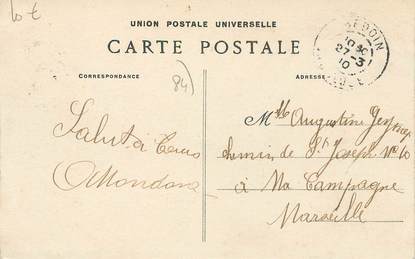 10 €
UNION POSTALE UNIVERSELLE
CARTE POSTALE
CORRESPONDANCE
84)
ADRESSE
27-3
10
Salut à tous
Mlle Augustine
chemin de St Joseph No 10
à Ma Campagne
Marseille